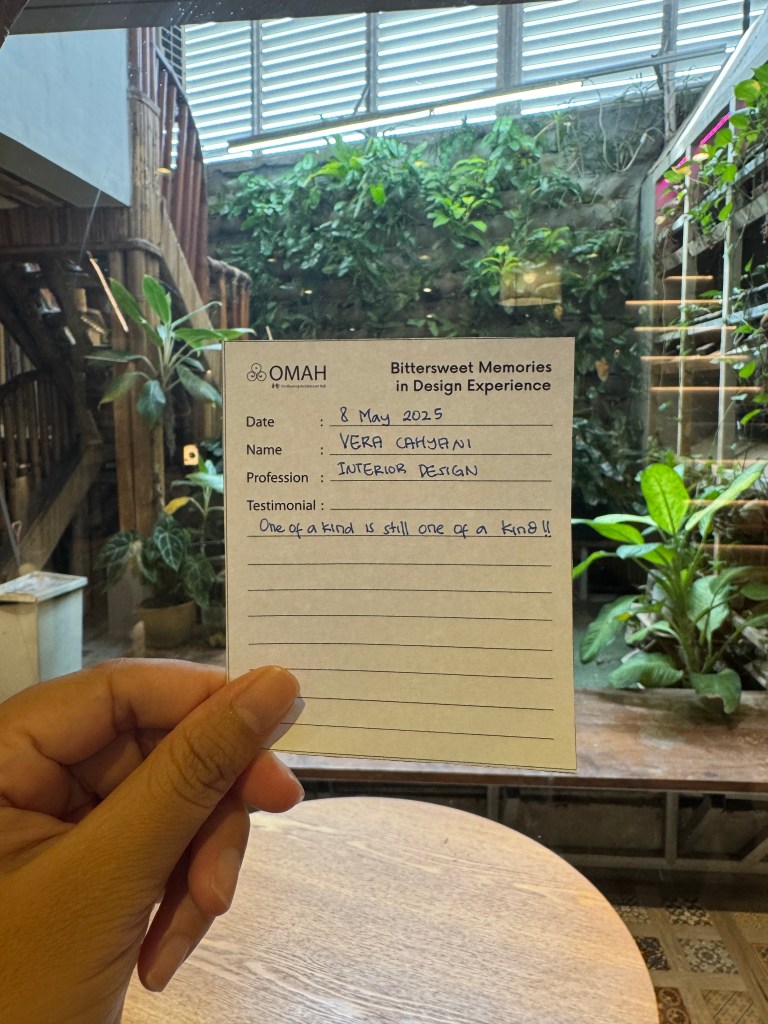 OMAH
Bittersweet Memories
in Design Experience
Date : 8 May 2025
Name : VERA CAHYANI
Profession : INTERIOR DESIGN
Testimonial :
One of a kind is still one of a kind!!